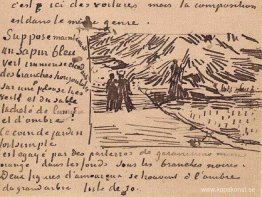 c'est ici des voitures mais la composition
est dans le même genre.
Suppose maintenant
un Sapin bleu
vert immense
des branches horizontales
sur une pelouse très
verte et du sable
tacheté de lumière
et d'ombre.
Ce coin de jardin
fort simple
est égayé par des parterres de géraniums mine
orange dans les fonds sous les branches noires.
Deux figures d'amoureux se trouvent à l'ombre
du grand arbre toile de 30.
www.kopiakonst.se